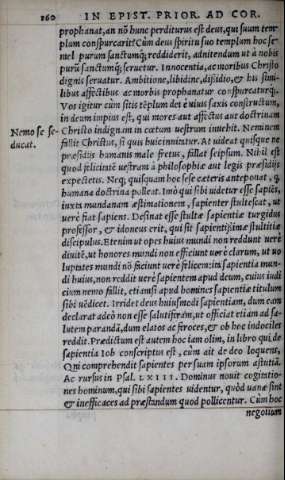 160 IN EPIST. PRIOR. AD COR.
prophanat, an nõ hunc perditurus est deus, qui suum tem-
plum conspurcarit? Cùm deus spiritu suo templum hoc se-
mel purum sanctumq; reddiderit, adnitendum ut à nobis
purũ sanctumq; seruetur. Innocentia, ac moribus Christo
dignis seruatur. Ambitione, libidine, dissidio, & his simi-
libus affectibus ac morbis prophanatur conspurcaturq;.
Vos igitur cùm sitis tẽplum dei è uiuis saxis constructum,
in deum impius est, qui mores aut affectus aut doctrinam
Nemo se se- Christo indignam in cœtum uestrum inuehit. Neminem
ducat. fallit Christus, si quis huic innitatur. At uideat quisque ne
præsidijs humanis male fretus, fallat seipsum. Nihil est
quod felicitatē uestram à philosophiæ aut legis præsidijs
expectetis. Neq; quisquam hoc sese cæteris anteponat, q
humana doctrina polleat. Imò qui sibi uidetur esse sapiēs,
iuxta mundanam æstimationem, sapienter stultescat, ut
uerè fiat sapiens. Desinat esse stultæ sapientiæ turgidus
professor, & idoneus erit, qui sit sapientissimæ stultitiæ
discipulus. Etenim ut opes huius mundi non reddunt uerè
diuitē, ut honores mundi non efficiunt uerè clarum, ut uo
luptates mundi nõ faciunt uerè felicem: ita sapientia mun-
di huius, non reddit uerè sapientem apud deum, cuius iudi
cium nemo fallit, etiamsi apud homines sapientiæ titulum
sibi uēdicet. Irridet deus huiusmodi sapientiam, dum eam
declarat adeò non esse salutiferam, ut officiat etiam ad sa-
lutem parandā, dum elatos ac feroces, & ob hoc indociles
reddit. Prædictum est autem hoc iam olim, in libro qui de
sapientia Iob conscriptus est, cùm ait de deo loquens,
Qui comprehendit sapientes per suam ipsorum astutiā.
Ac rursus in Psal. LXIII. Dominus nouit cogitatio-
nes hominum, qui sibi sapientes uidentur, quòd uanæ sint
& inefficaces ad præstandum quod pollicentur. Cùm hoc
negotium